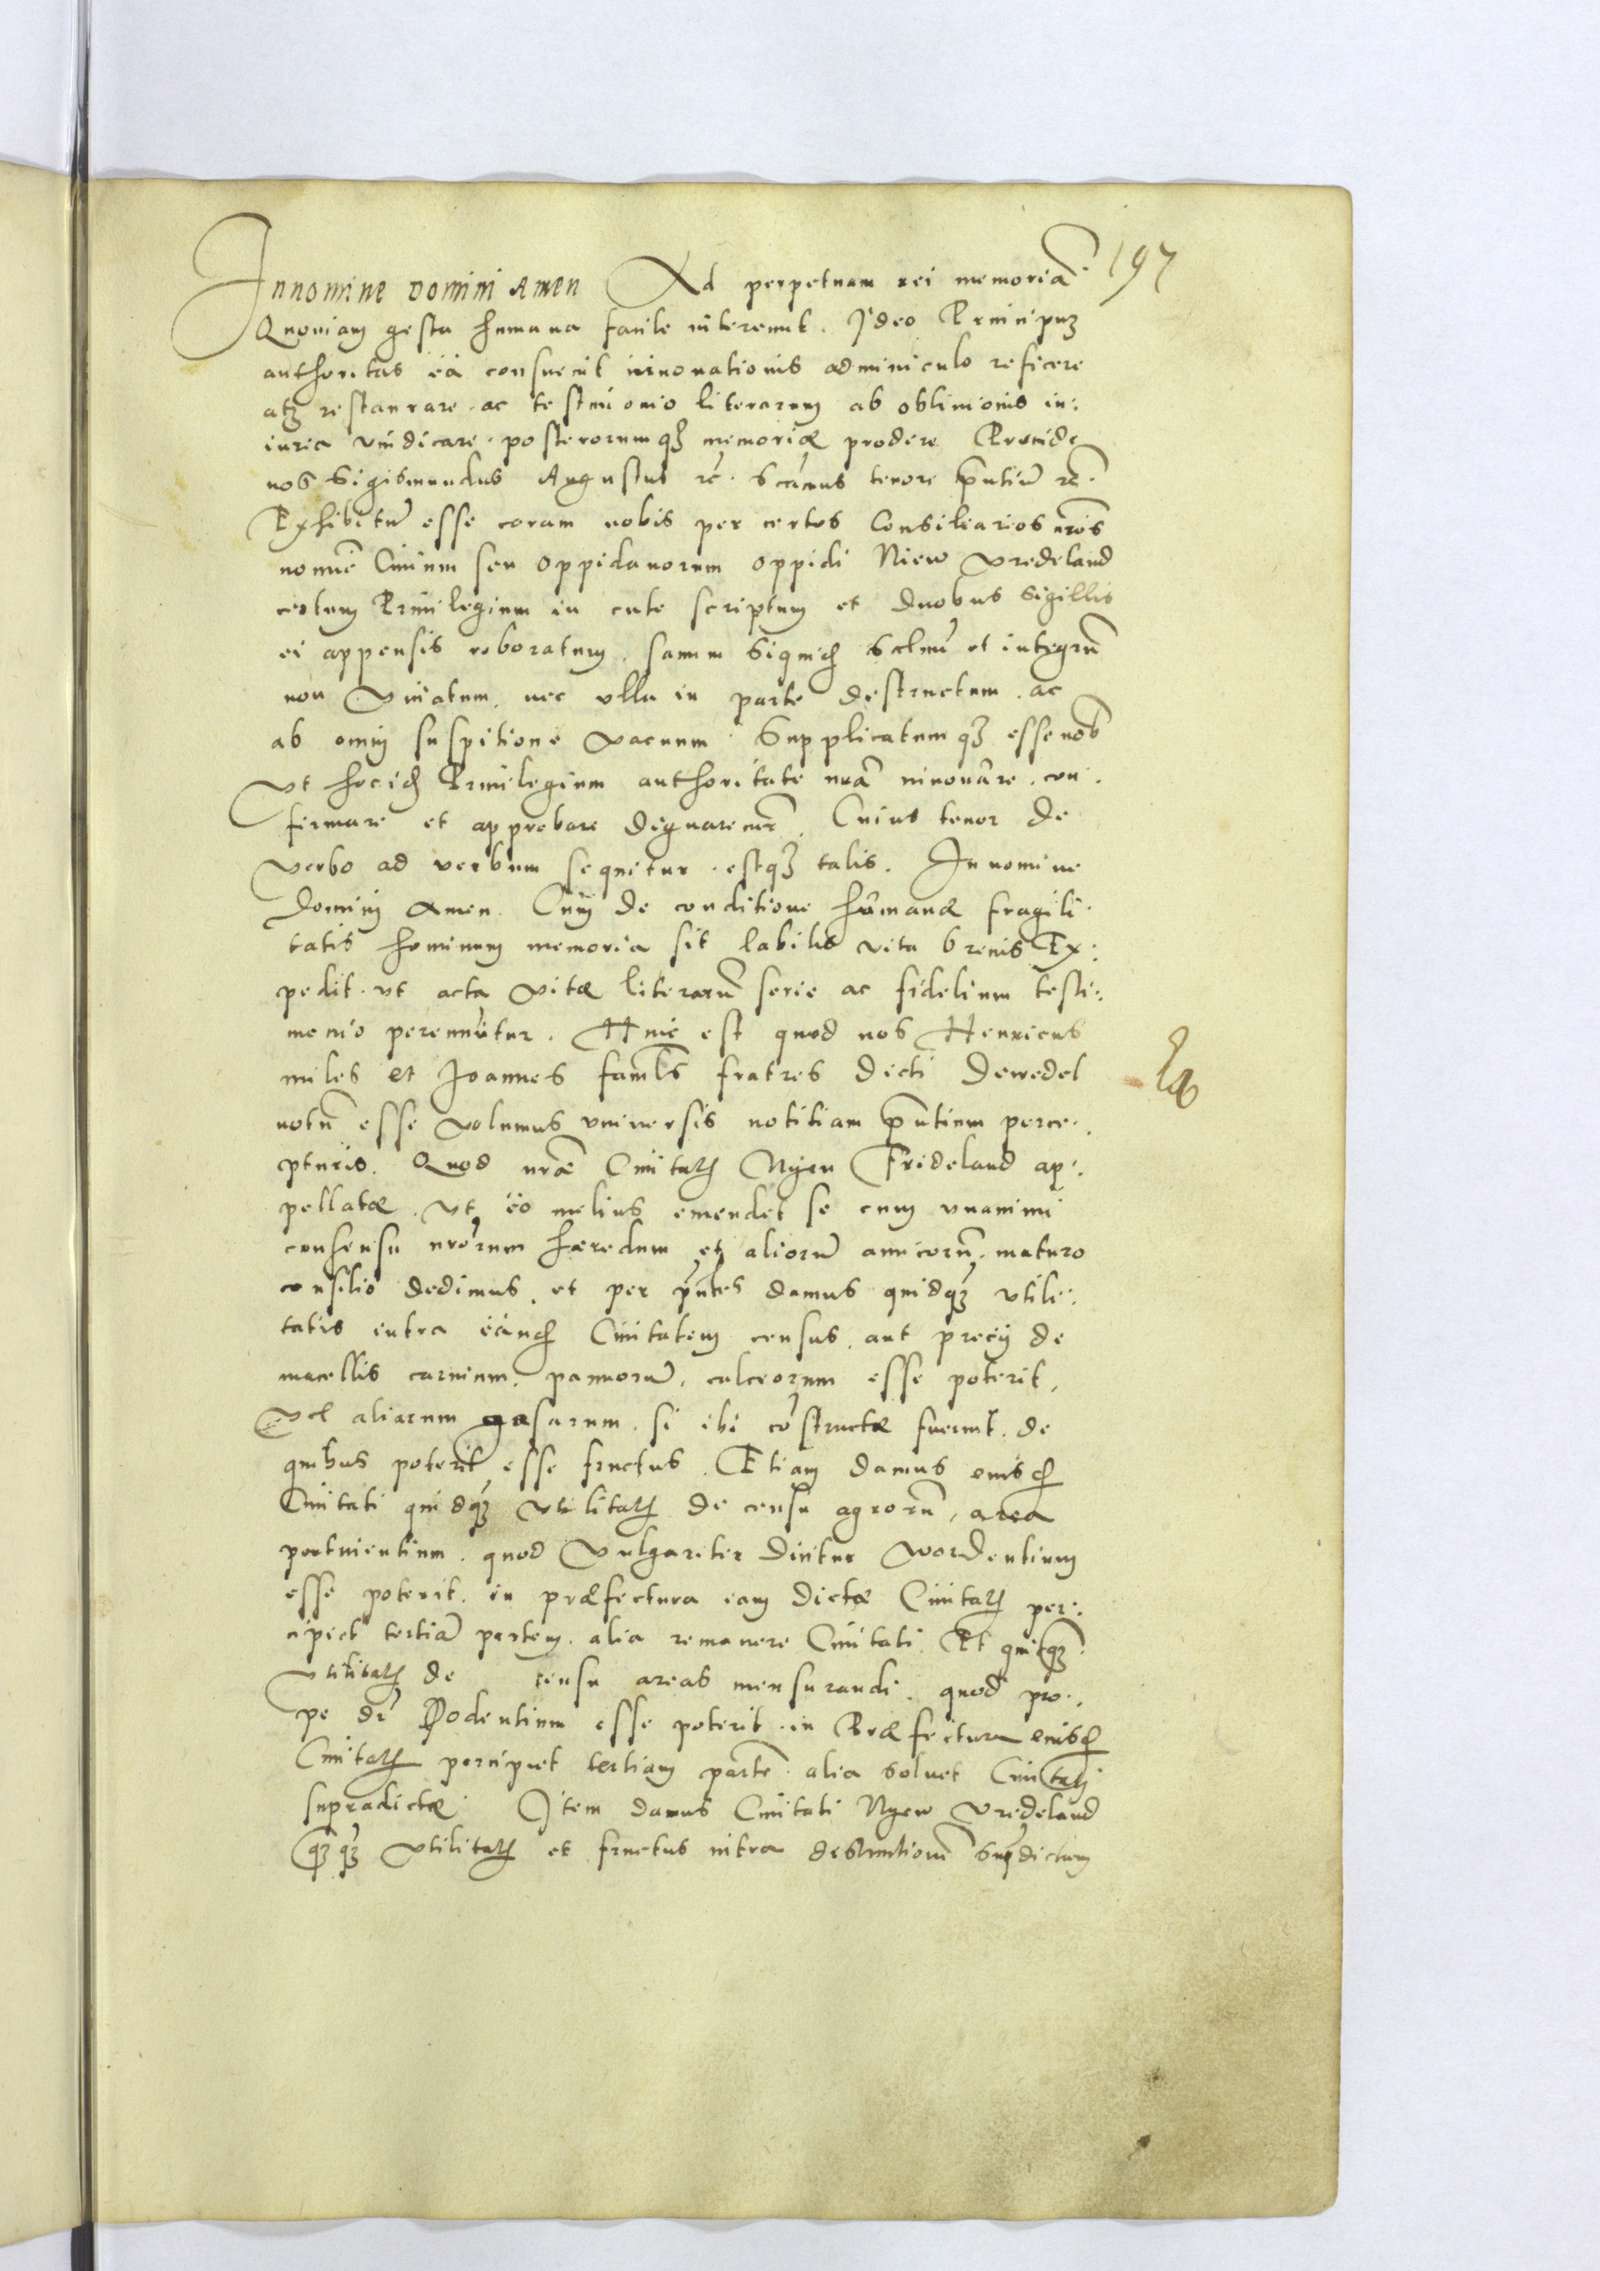 197
In nomine Domini Amen Ad perpetuam rei memoriā
Quoniam gesta humana facile intereunt. Ideo Principum
authoritas ea consuevit innovationis adminiculo reficere
atq restaurare ac testimonio literarum ab oblivionis in:
iuria vindicare posterorumq memoriæ prodere Proinde
nos Sigismundus Augustus rc. tenore pntiū rc.
Exhibitū esse coram nobis per certos Consiliarios nros
nomīe Civium seu oppidanorum oppidi Niew Vredeland
certum Privilegium in cute scriptum et duobus sigillis
ei appensis roboratum. sanum siquidem salvū et integrū
non viciatum. nec ulla in parte destructum. ac
ab omni suspitione vacuum. Supplicatumq esse nob
Vt hocid Privilegium authoritate nrā innovare. con:
firmare et approbare dignaremr. Cuius tenor de
verbo ad verbum sequitur estq talis. In nomine
Domini Amen. Cum de conditione humanæ fragili:
tatis hominum memoria sit labilis vita brevis Ex:
pedit. ut acta vitæ literarū serie ac fidelium testi:
monio perennūtur. Hinc est quod nos Henricus
miles et Joannes famls fratres dicti Dewedel
La
notū esse volumus universis notitiam pntium perce:
pturis. Quod nræ Civitatis Nyen Frideland ap:
pellatæ. Ut eo melius emendet se cum unanimi
consensu nrorum hæredum et aliorū amicorū. maturo
consilio dedimus. et per pntes damus quidq utili:
tatis intra eandem Civitatem census. aut precii de
macellis carnium. pannorū. calceorum esse poterit.
Vel aliarum casarum. si ibi cōstructæ fuerint. de
quibus poterit esse fructus. Etiam damus eiusd
Civitati quidq utilitatis de censu agrorū, area
pertinentium. quod vulgariter dicitur Wordentium
esse poterit. in præfectura iam dictæ Civitatis per:
cipiet tertiā partem. alia remanere Civitati. Et quicq
utilitatis de censu areas mensurandi. quod pro:
pe dr Rodentium esse poterit. in Præfectura eiusd
Civitatis percipiet tertiam partē. alia solvet Civitatis
supradictæ. Item damus Civitati Nyew Vredeland
utilitatis et fructus intra distinctionē supdictam